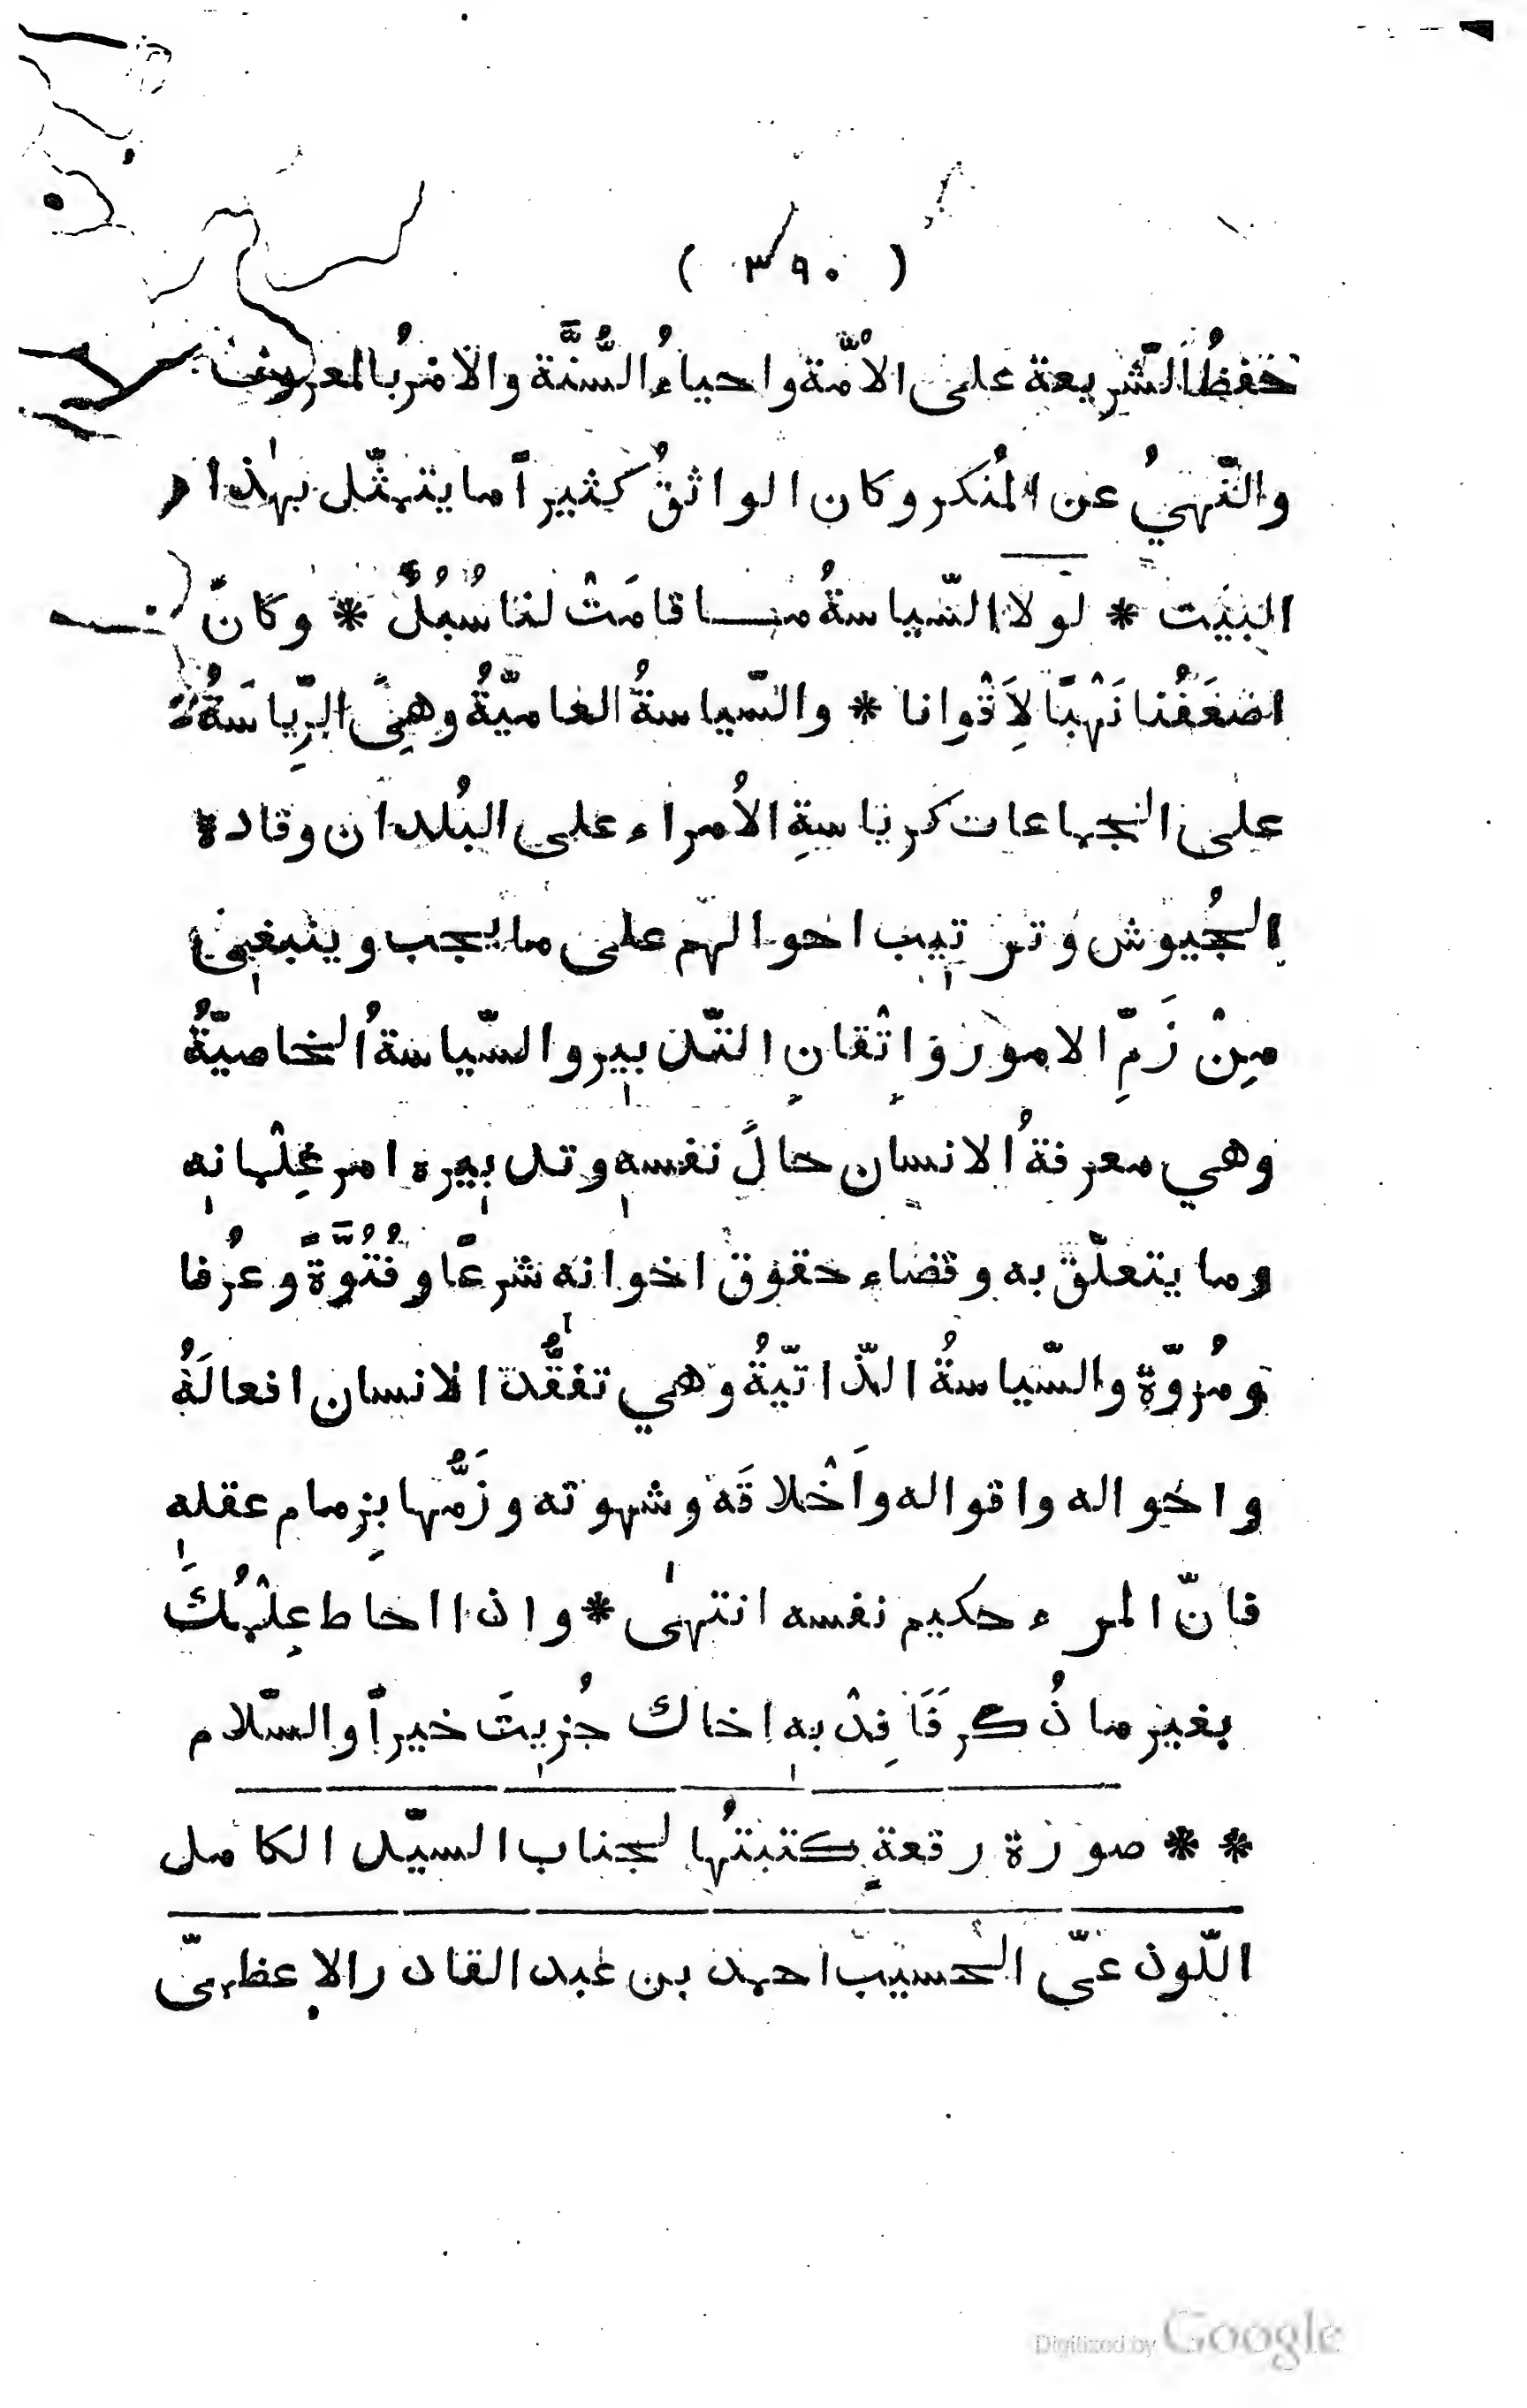 ( ٣٩٠ )
حفظُ الشّريعة على الاُمّة واحياءُ السُّنَّة والامرُ بالمعروف
والنّهيُ عن المُنكر وكان الواثقُ كثيراً ما يتمثّل بهٰذا
البيت * لولا السّياسةُ مــا قامَتْ لنا سُبُلٌ * وكانَ
اضعَفُنا نَهْبًا لِاَقْوانا * والسّياسةُ العاميّةُ وهيَ الرِّياسَةُ
على الجماعات كرياسةِ الاُمراء على البُلدان وقادة
الجُيوش وترتيب احوالهم على ما يجب وينبغي
مِنْ زَمِّ الامور واتْقانِ التّدبير والسّياسةُ الخاصيّةُ
وهي معرفةُ الانسان حالَ نفسه وتدبيره امر غِلْمانه
وما يتعلّق به وقضاء حقوق اخوانه شرعًا وفُتُوَّةً وعُرفا
ومُروّة والسّياسةُ الذّاتيّةُ وهي تفقُّد الانسان افعالَهُ
واحواله واقواله واَخْلاقَه وشهوته وزَمُّها بِزمام عقله
فانّ المرء حكيم نفسه انتهٰى * واذا احاط عِلْمُكَ
بغير ما ذُكر فَاَفِدْ به اخاك جُزيتَ خيراً والسّلام
* * صورة رقعةٍ كتبتُها لجناب السيّد الكامل
اللّوذعيّ الحسيب احمد بن عبد القادر الاعظميّ
Digitized by Google